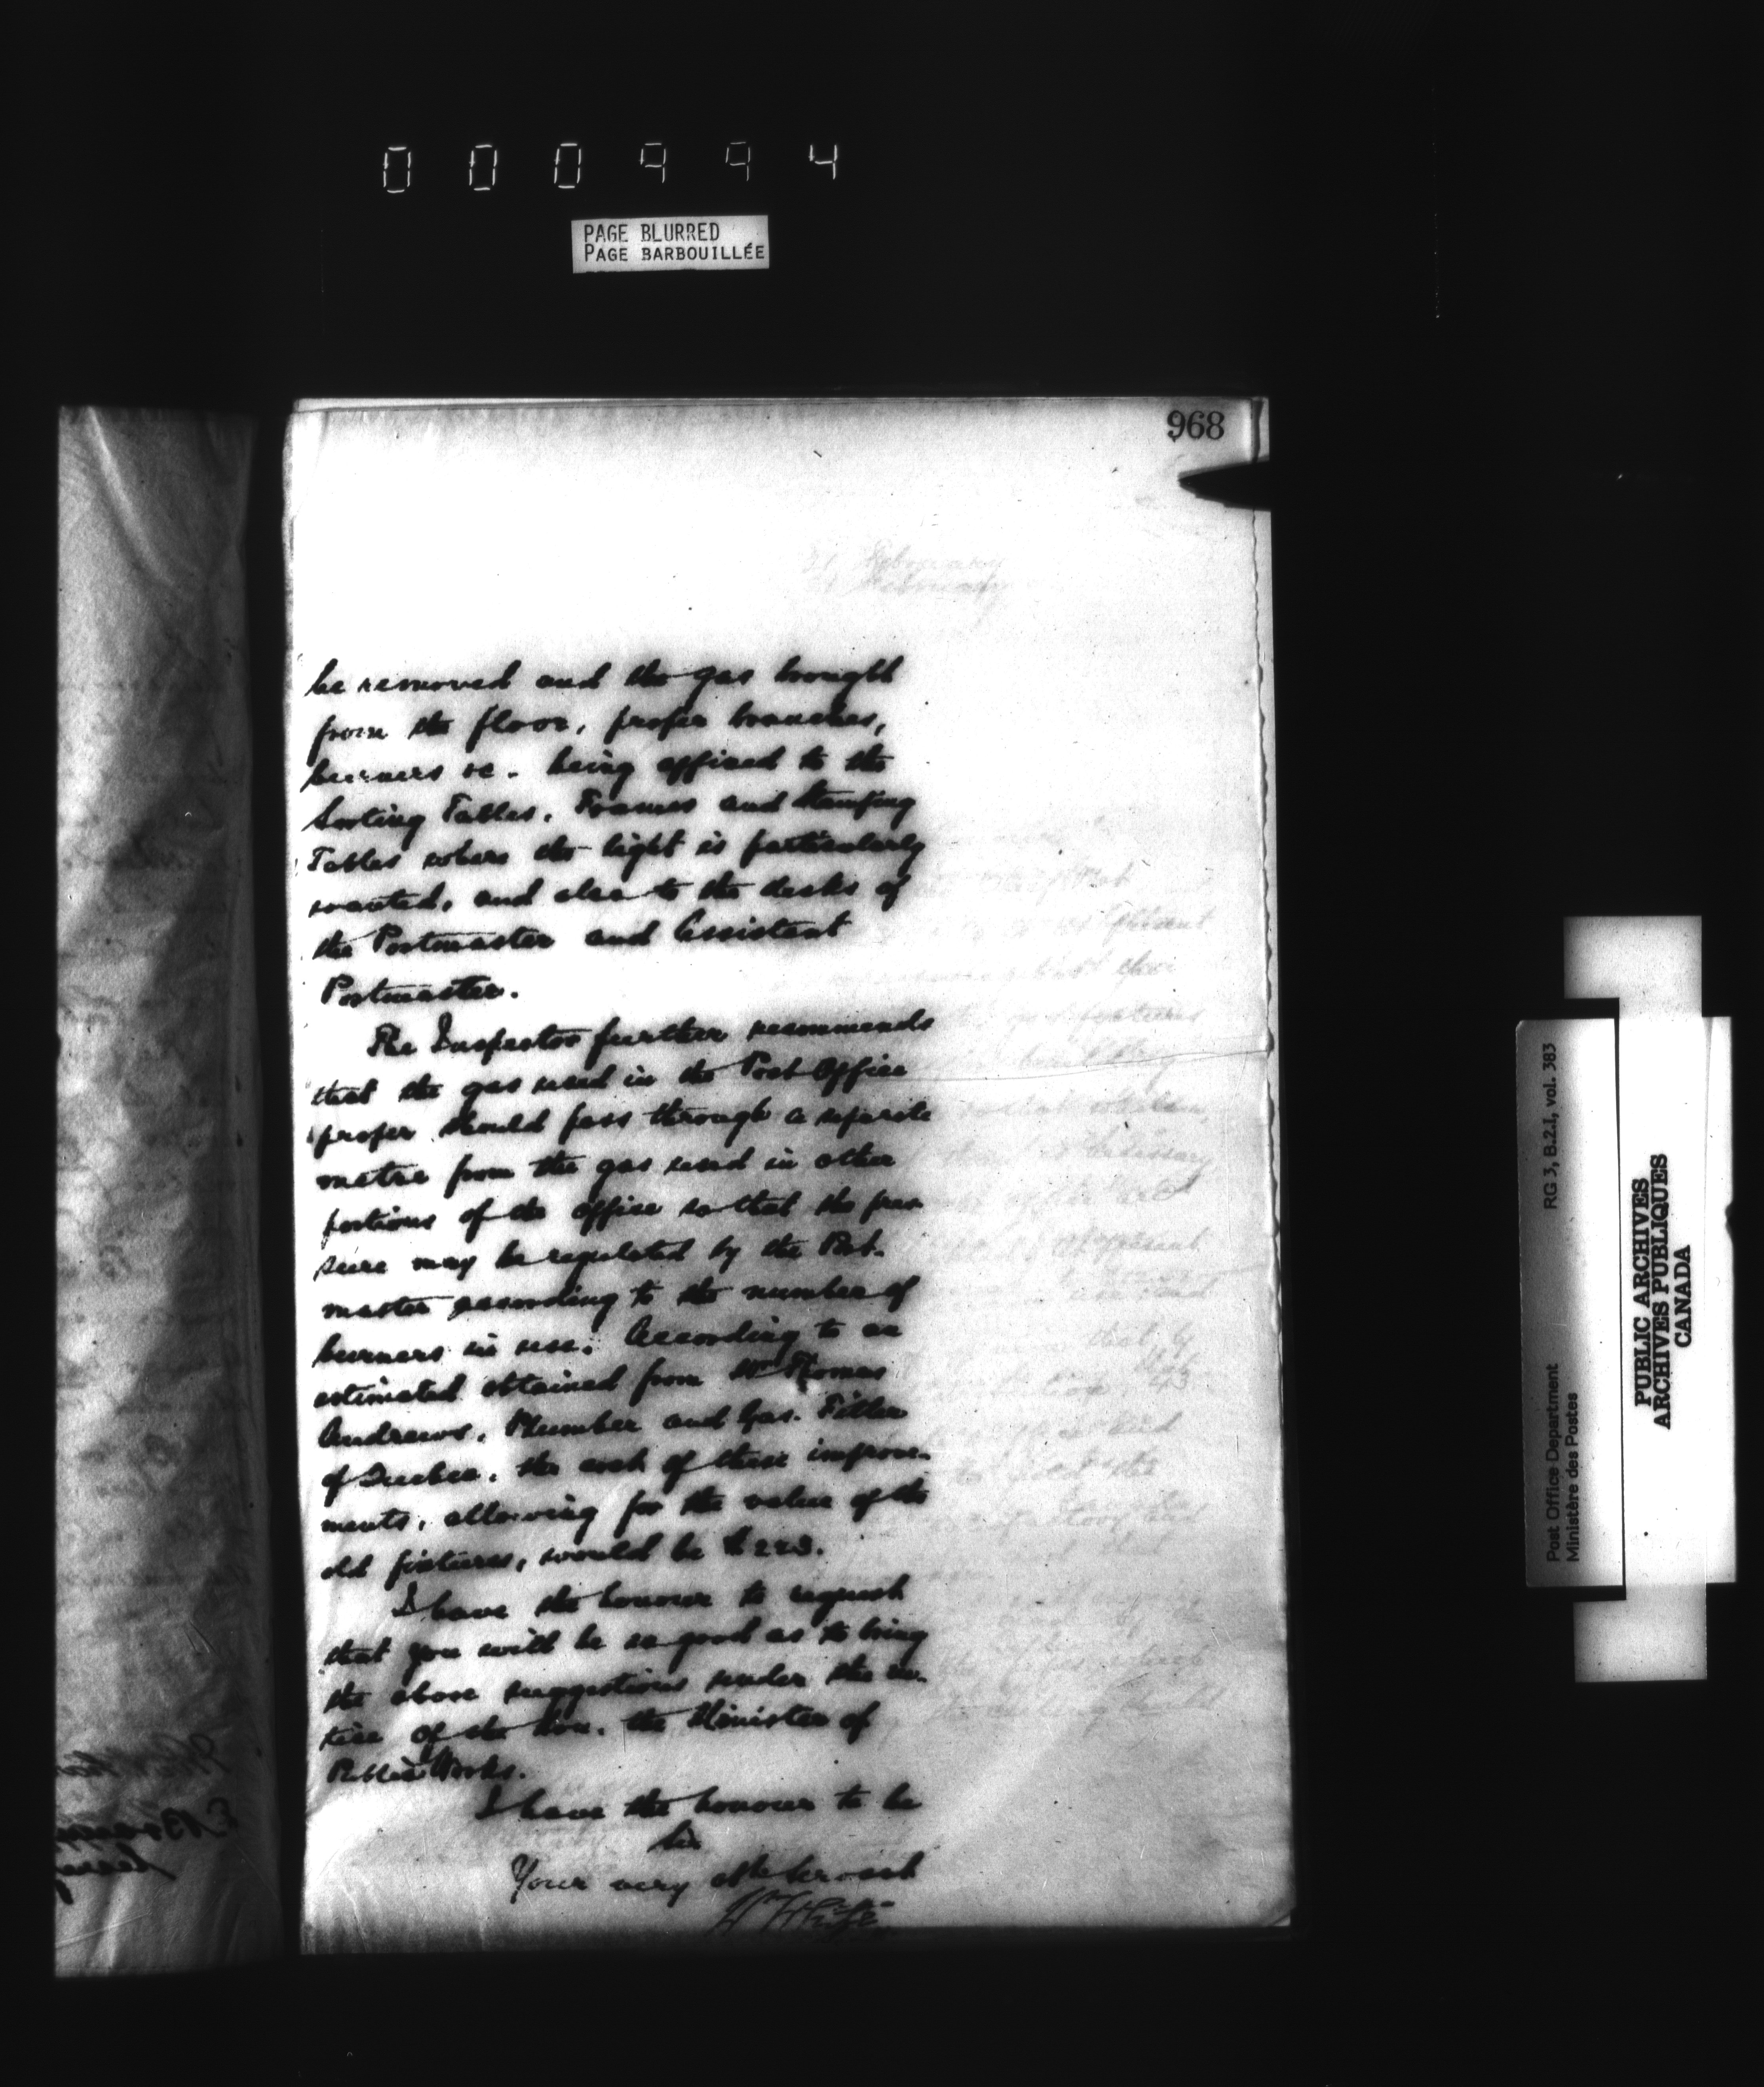 000994
PAGE BLURRED
PAGE BARBOUILLÉE
968
be removed and the gas brought
from the floor, proper branches,
burners &c. being affixed to the
Sorting Tables, Frames and Stamping
Tables where the light is particularly
wanted, and also to the desks of
the Postmaster and Assistant
Postmaster.
The Inspector further recommends
that the gas used in the Post Office
proper should pass through a separate
metre from the gas used in other
portions of the office so that the pres
sure may be regulated by the Post-
master according to the number of
burners in use. According to an
estimated obtained from Mr Thomas
Andrews, Plumber and Gas-Fitter
of Quebec, the cost of these improve-
ments, allowing for the value of the
old fixtures, would be $223.
I have the honour to request
that you will be so good as to bring
the above suggestions under the no-
tice of the Hon. the Minister of
Public Works.
I have the honour to be
Sir
Your very obt servant
Wm White
Post Office Department
Ministère des Postes
RG 3, B.2.1, vol. 383
PUBLIC ARCHIVES
ARCHIVES PUBLIQUES
CANADA